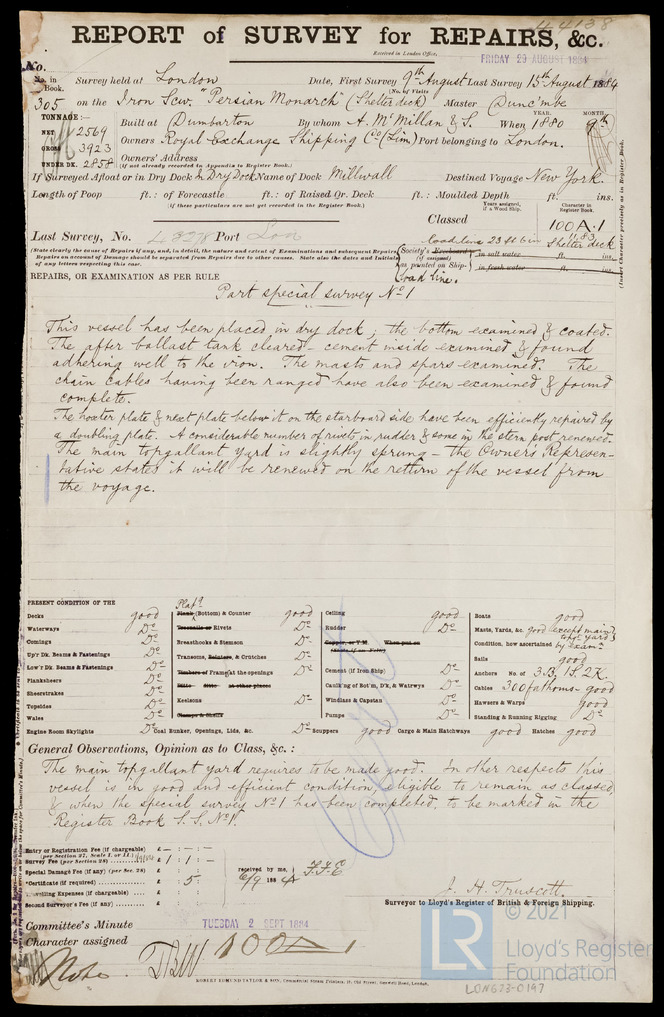 44138
REPORT of SURVEY for REPAIRS, &c.
Received in London Office,
FRIDAY 29 AUGUST 1884
No.
No. in Book. Survey held at London Date, First Survey 9th August Last Survey 15th August 1884
(No. of Visits
305 on the Iron Scw. "Persian Monarch" (Shelter deck) Master
TONNAGE:— Built at Dumbarton By whom A. McMillan & S. When YEAR. 1880 MONTH. 9th
NET 2569
GROSS 3923 Owners Royal Exchange Shipping Co (Lim) Port belonging to London.
UNDER DK. 2858 Owners' Address
(if not already recorded in Appendix to Register Book.)
If Surveyed Afloat or in Dry Dock In Dry Dock Name of Dock Millwall Destined Voyage New York.
Length of Poop ft.: of Forecastle ft.: of Raised Qr. Deck ft.: Moulded Depth ft. ins.
(if these particulars are not yet recorded in the Register Book.)
Years assigned, if a Wood Ship.
Character in Register Book.
Classed 100 A.1
Last Survey, No. Port Lon 11.83
Shelter deck
Load line 23 ft 6 in
(State clearly the cause of Repairs if any, and, in detail, the nature and extent of Examinations and subsequent Repairs.
Repairs on account of Damage should be separated from Repairs due to other causes. State also the dates and Initials
of any letters respecting this case.
Society's Freeboard (if assigned) as painted on Ship— in salt water ft. ins.
in fresh water ft. ins.
Load line.
(Insert Character precisely as in Register Book.
REPAIRS, OR EXAMINATION AS PER RULE
Part special survey No 1
This vessel has been placed in dry dock, the bottom examined & coated.
The after ballast tank cleared – cement inside examined & found
adhering well to the iron. The masts and spars examined. The
chain cables having been ranged have also been examined & found
complete.
The hoxter plate & next plate below it on the starboard side have been efficiently repaired by
a doubling plate. A considerable number of rivets in rudder & some in the stern post renewed.
The main topgallant yard is slightly sprung – the Owner's Represen-
tative states it will be renewed on the return of the vessel from
the voyage.
PRESENT CONDITION OF THE
Decks good
Waterways Do
Comings Do
Up'r Dk. Beams & Fastenings Do
Low'r Dk. Beams & Fastenings Do
Planksheers
Sheerstrakes Do
Topsides Do
Wales Do
Engine Room Skylights Do
Plank (Bottom) & Counter good
Treenails or Rivets Do
Breasthooks & Stemson Do
Transoms, Pointers, & Crutches Do
Timbers of Frame at the openings Do
Ditto ditto at other places
Keelsons Do
Clamps & Shelfs
Coal Bunker, Openings, Lids, &c. Do
Ceiling good
Rudder Do
Copper, or Y.M. When put on
Cement (if Iron Ship) Do
Caulk'g of Bot'm, D'k, & Watrwys Do
Windlass & Capstan Do
Pumps Do
Scuppers good
Cargo & Main Hatchways good
Boats good
Masts, Yards, &c. good except main
topgt yard
Condition, how ascertained by exam
Sails good
Anchors No. of 3B, 1S, 2K.
Cables 300 fathoms – good
Hawsers & Warps good
Standing & Running Rigging Do
Hatches good
General Observations, Opinion as to Class, &c.:
The main topgallant yard requires to be made good. In other respects this
vessel is in good and efficient condition, eligible to remain as classed
& when the special survey No 1 has been completed, to be marked in the
Register Book S.S. No 1.
Entry or Registration Fee (if chargeable) £
(per Section 27, Scale I. or II.)
Survey Fee (per Section 28) £ 1 : 1 : –
Special Damage Fee (if any) (per Sec. 28) £
Certificate (if required) £ : 5 :
Travelling Expenses (if chargeable) £
Second Surveyor's Fee (if any) £
received by me,
6/9 1884
J. H. Truscott.
Surveyor to Lloyd's Register of British & Foreign Shipping.
Committee's Minute TUESDAY 2 SEPT 1884
Character assigned 100A1
Note
ROBERT EDMUND TAYLOR & SON, Commercial Steam Printers, 19, Old Street, Goswell Road, London.
LR
© 2021
Lloyd's Register
Foundation
LON673-0197